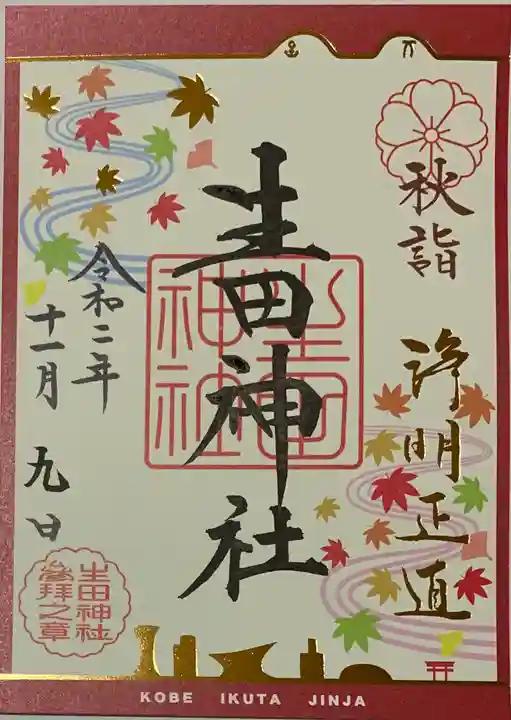 秋詣
浄明正直
生田神社
生田神社
令和二年
十一月九日
生田神社
参拝之章
KOBE IKUTA JINJA